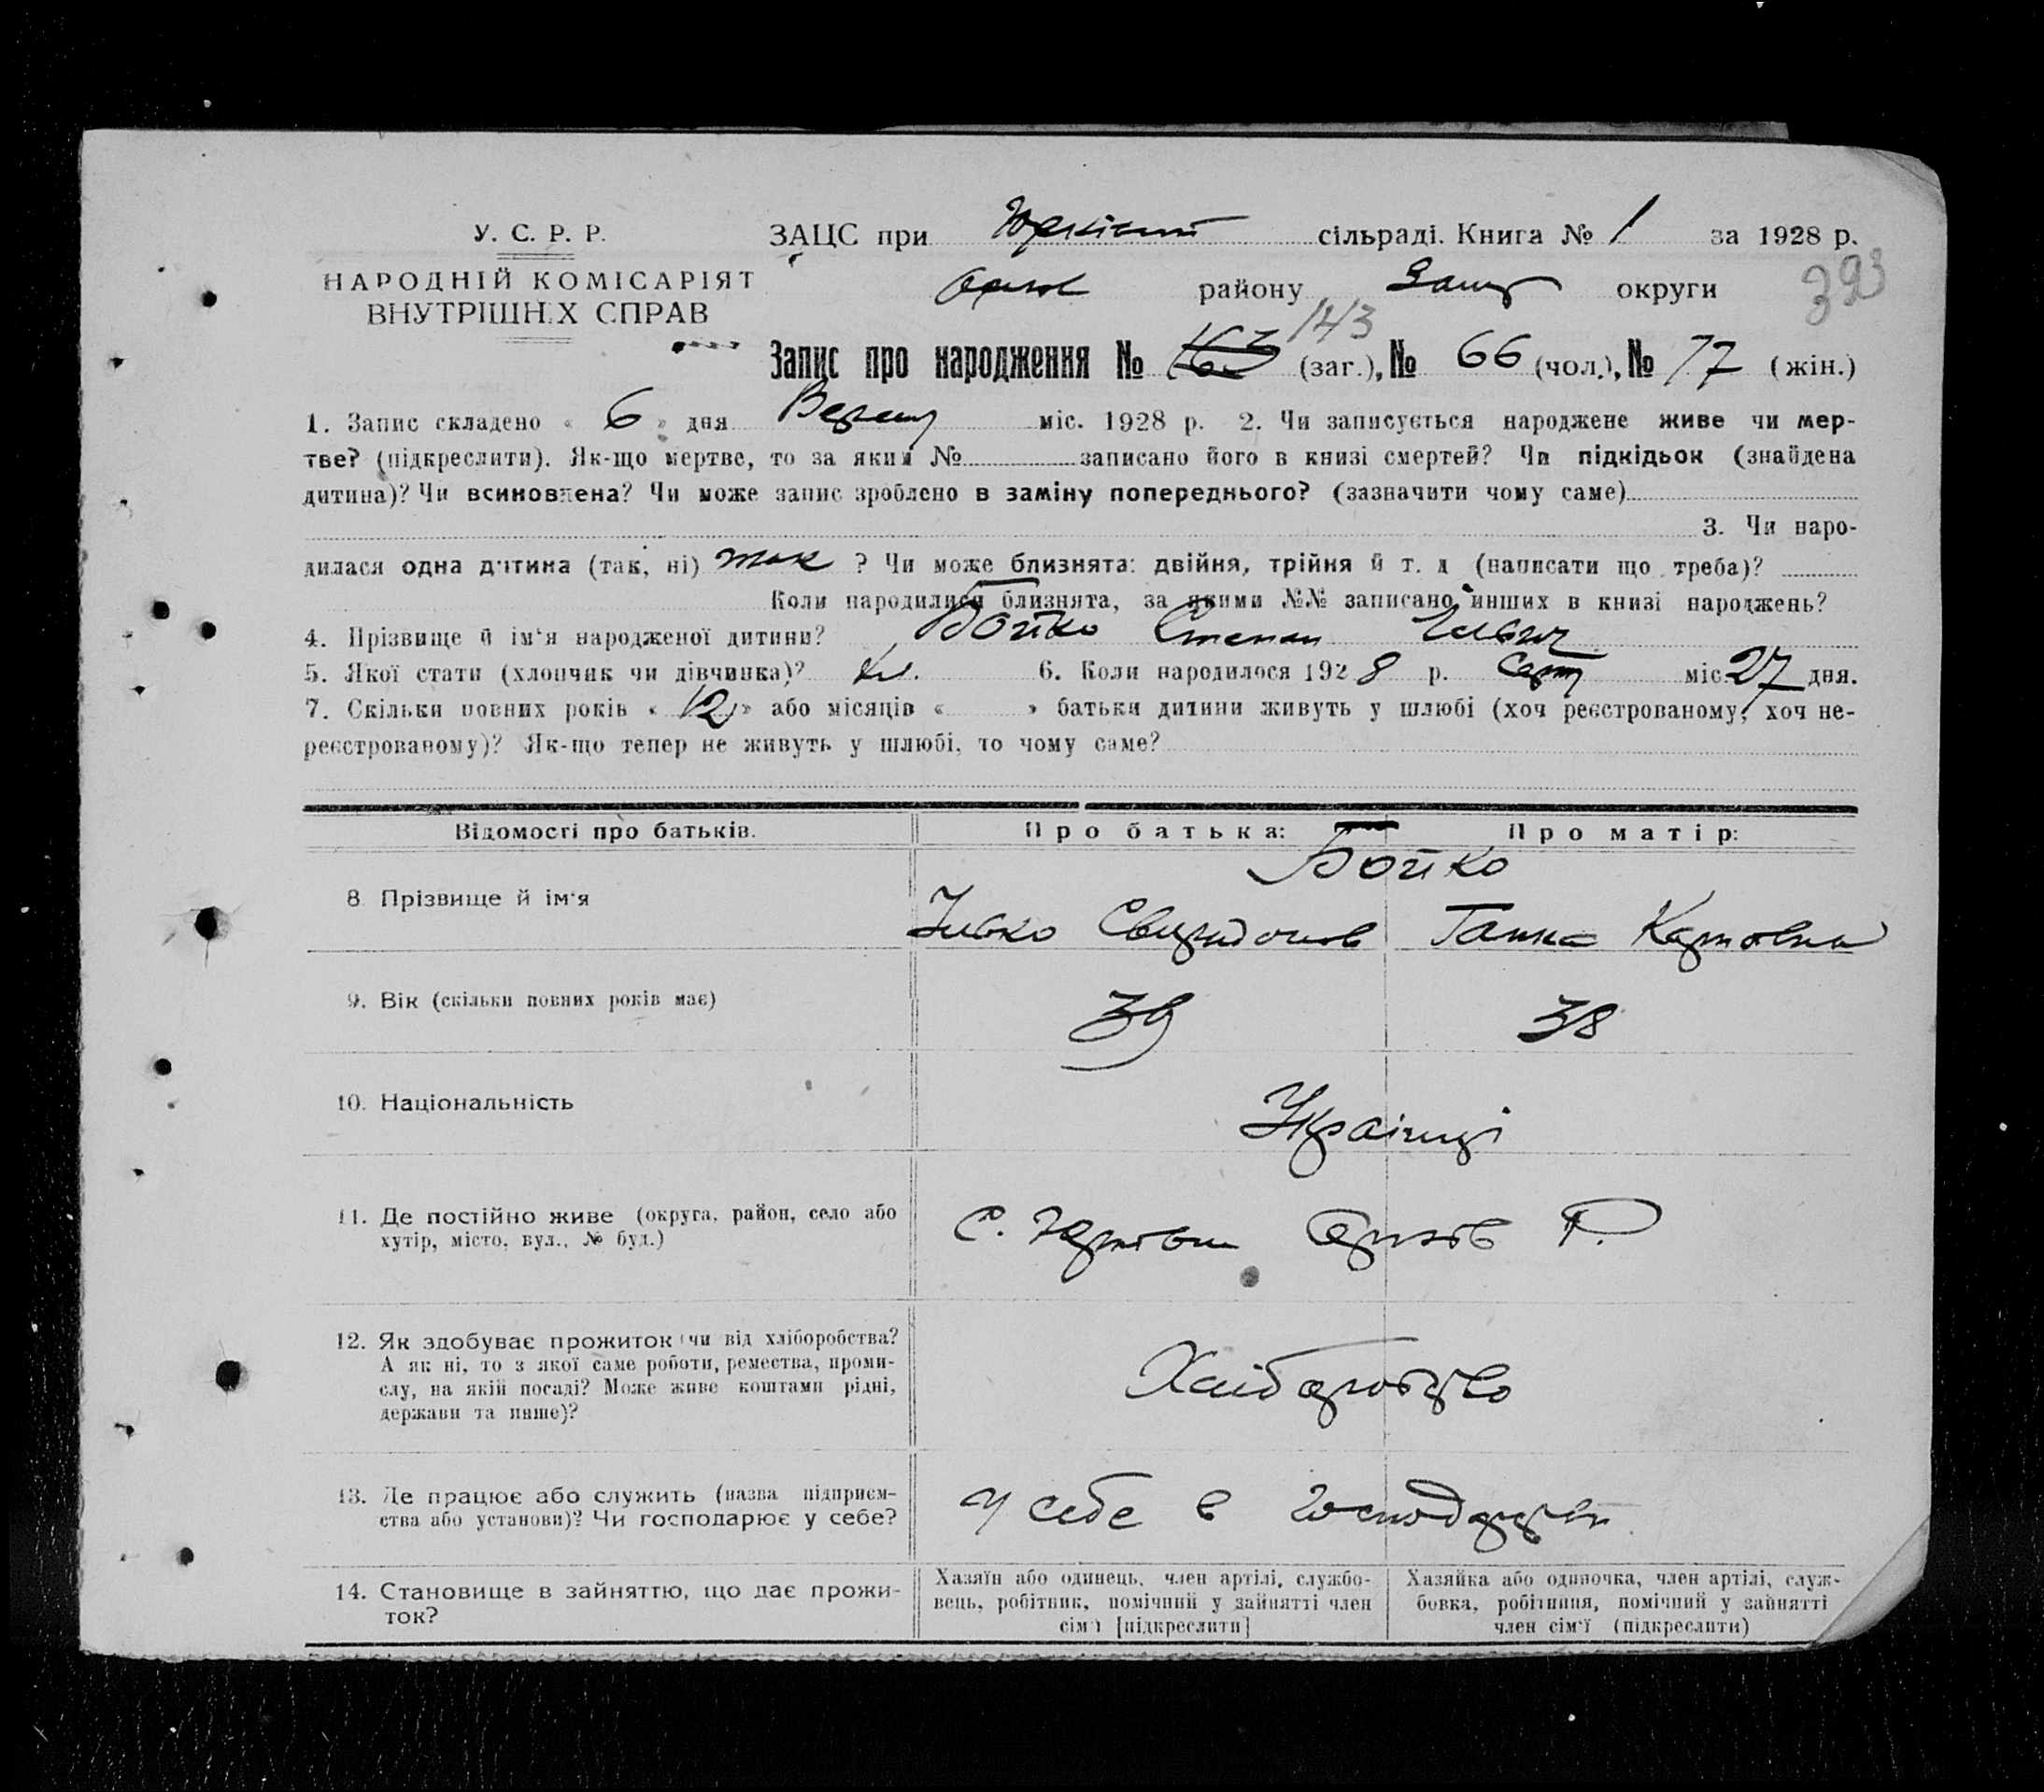 У. С. Р. Р. ЗАЦС при Юрківській сільраді. Книга № 1 за 1928 р.
НАРОДНІЙ КОМІСАРІЯТ району округи 393
ВНУТРІШНІХ СПРАВ
Запис про народження № 163 143 (заг.), № 66 (чол.), № 77 (жін.)
1. Запис складено « 6 » дня міс. 1928 р. 2. Чи записується народжене живе чи мер-
тве? (підкреслити). Як-що мертве, то за яким № записано його в книзі смертей? Чи підкідьок (знайдена
дитина)? Чи всиновлена? Чи може запис зроблено в заміну попереднього? (зазначити чому саме)
3. Чи наро-
дилася одна дитина (так, ні) так ? Чи може близнята: двійня, трійня й т. д (написати що треба)?
Коли народилися близнята, за якими №№ записано инших в книзі народжень?
4. Прізвище й ім'я народженої дитини? Бойко Степан
5. Якої стати (хлопчик чи дівчинка)? Хл. 6. Коли народилося 1928 р. серп міс. 27 дня.
7. Скільки повних років « 12 » або місяців « » батьки дитини живуть у шлюбі (хоч реєстрованому, хоч не-
реєстрованому)? Як-що тепер не живуть у шлюбі, то чому саме?
Відомості про батьків. Про батька: Про матір:
Бойко
8. Прізвище й ім'я Ганна
9. Вік (скільки повних років має) 39 38
10. Національність Українці
11. Де постійно живе (округа, район, село або
хутір, місто, вул., № буд.) С. Р.
12. Як здобуває прожиток (чи від хліборобства?
А як ні, то з якої саме роботи, ремества, проми-
слу, на якій посаді? Може живе коштами рідні,
держави та инше)? Хліборобство
13. Де працює або служить (назва підприєм-
ства або установи)? Чи господарює у себе? У себе в господарстві
14. Становище в зайняттю, що дає прожи-
ток?
Хазяїн або одинець, член артілі, службо-
вець, робітник, помічний у зайнятті член
сім'ї [підкреслити]
Хазяйка або одиночка, член артілі, служ-
бовка, робітниця, помічний у зайнятті
член сім'ї (підкреслити)